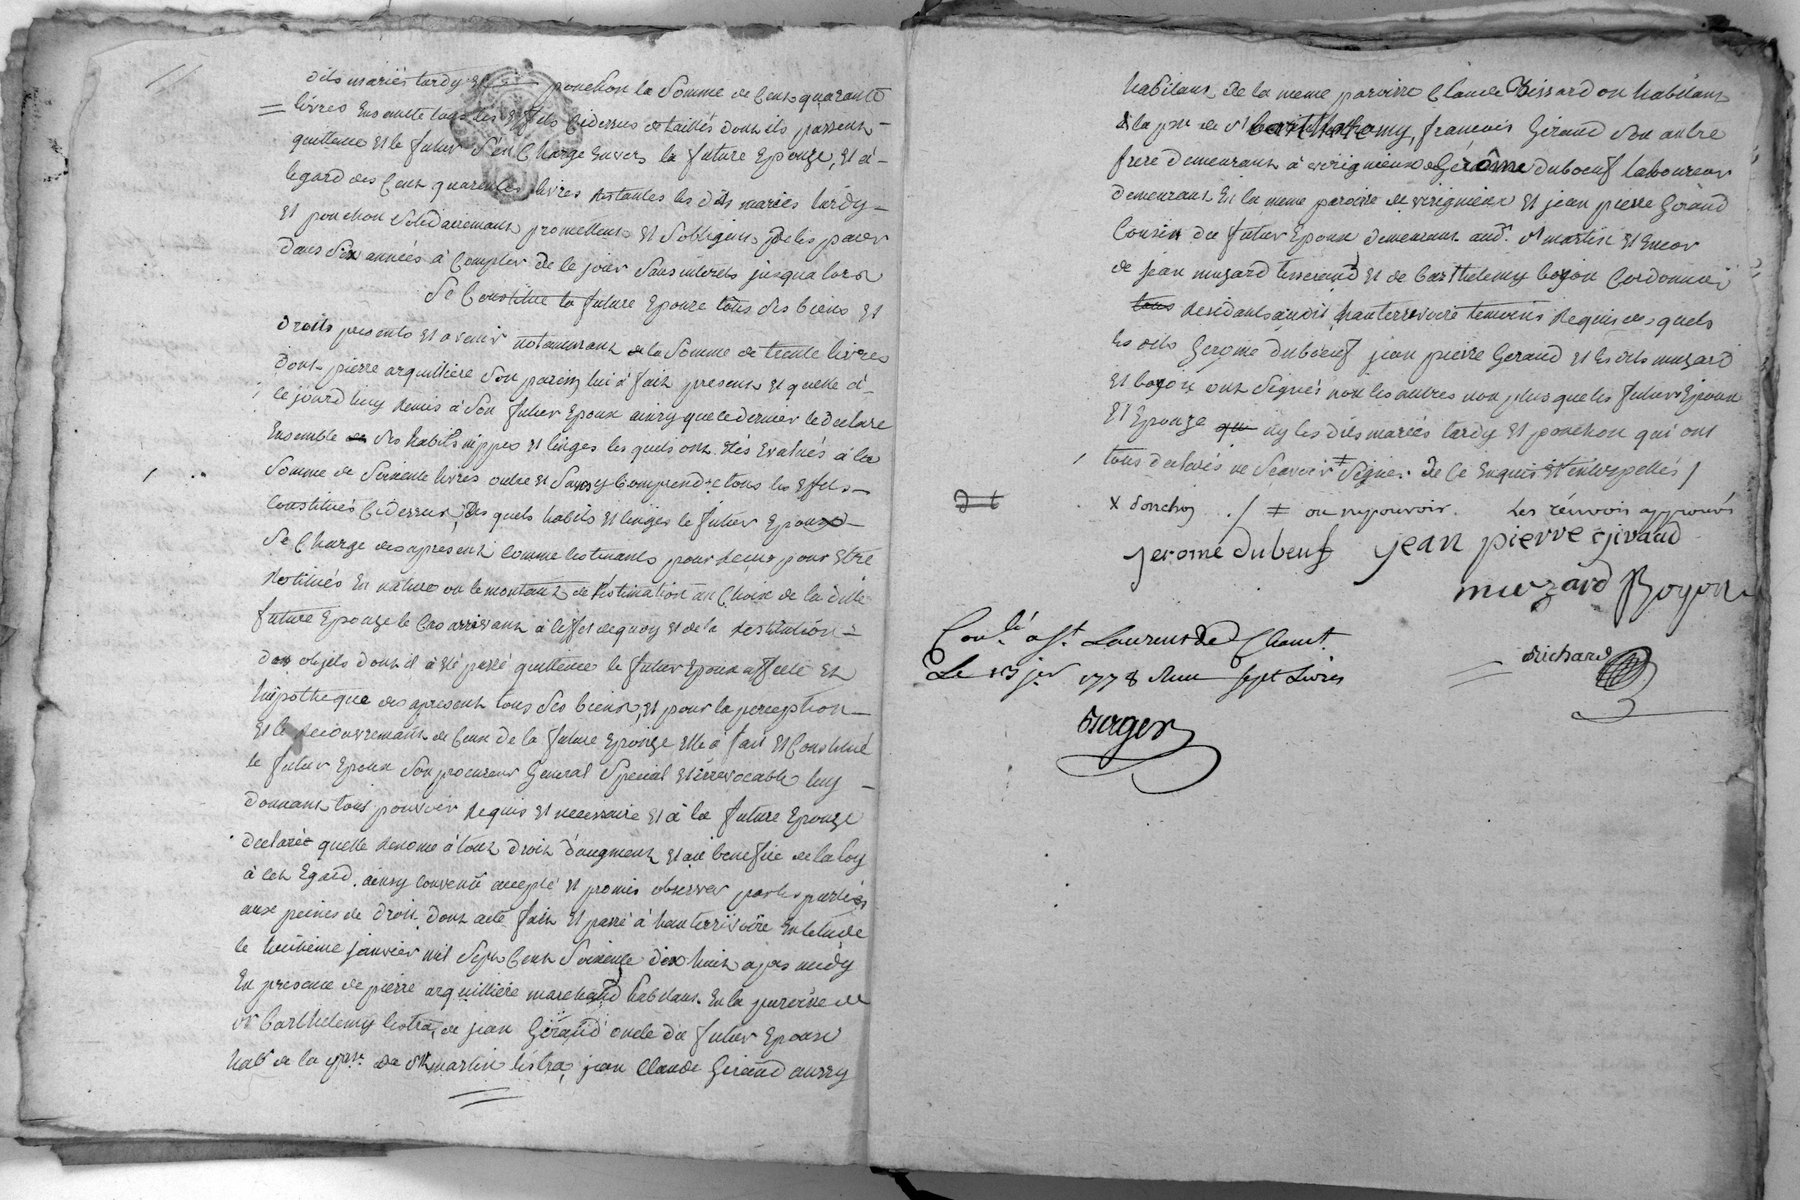 dits mariés tardy et ponchon la somme de Cent quarante
livres Ensemble tous les Effets Cidessus détaillés dont ils passent
quittance Et le futur S'en Charge Envers la future Epouze, Et à
legard des Cent quarante livres Restantes les dits mariés tardy
Et ponchon Solidairement promettent Et Sobligent de les paier
Dans Six années à Compter de Ce jour Sans interets jusqu'a lors
Se Constitue la future Epouze tous Ses biens Et
Droits presents Et avenir notamment de la Somme de trente livres
Dont pierre arquilliere Son parein lui à fait present Et quelle à
Cejourdhuy Remis à Son futur Epoux ainsy que Ce dernier le declare
Ensemble Ses habits nippes Et linges les quels ont Etés Evalués à la
Somme de Soixante livres outre Et Sans y Comprendre tous les Effets
Constitués Cidessus, Des quels habits Et linges le futur Epoux
Se Charge desapresent Comme les tenants pour Reçus pour Etre
Restitués En nature ou le montant de l'estimation au Choix de la ditte
future Epouze le Cas arrivant à l'effet dequoy Et de la Restitution
Des objets dont il à Eté passé quittance le futur Epoux affecte Et
hipotheque desapresent tous Ses biens, Et pour la perception
Et le Recouvrement de Ceux de la future Epouze Elle à fait Et Constitué
le futur Epoux Son procureur General Special Et irrevocable luy
donnant tout pouvoir Requis Et necessaire Et à la future Epouze
declaré quelle Renonce à tout droit d'augment Et au benefice de la loy
à Cet Egard. ainsy Convenu accepté Et promis observer par les parties
aux peines de Droit, Dont acte fait Et passé à hauterrivoire En letude
le huitieme janvier mil Sept Cent Soixante dix huit apres midy
En presence de pierre arquilliere marchand habitant En la paroisse de
St Barthelemy lestra, de jean Giraud oncle du futur Epoux
habt de la psse de St martin lestra, jean Claude Giraud aussy
habitant de la meme paroisse Claude Bissard habitant
de la psse de St barthelemy, françois Giraud Son autre
frere demeurant à virignieux Gérôme duboeuf laboureur
Demeurant En la meme paroisse de virignieux Et jean pierre Giraud
Cousin du futur Epoux demeurant aud. St martin Et Encor
de jean muzard tisserand Et de barthelemy boyon Cordonnier
tous Residants audit hauterrivoire temoins Requis des quels
les dits Gerome duboeuf jean pierre Geraud Et les dits muzard
Et boyon ont Signés non les autres non plus que les futurs Epoux
Et Epouze ny les dits mariés tardy Et ponchon qui ont
tous declarés ne Scavoir ‡ Signer de Ce Enquis Et interpellés /
x donchon ./ ‡ ou ny pouvoir. Les renvois approuvés
jerome dubeuf jean pierre giraud
muzard Boyon
Richard
Conlé a St. Laurent de Chamt.
Le 13 jer 1778 Reçu sept Livres
Burger